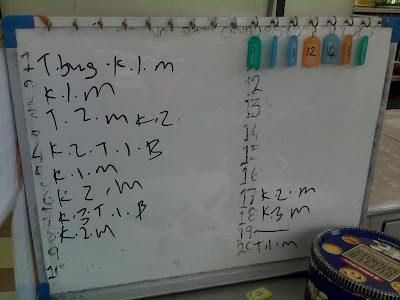 T.bug.K.1.m
K.1.M
T.2.m K.2.
K.2.T.1.B
K.1.M
K 2,m
K.3T.1.B
K.2.M
9.
12
13
14
15
16
17 K.2.m
18 K3 m
19
20 T.1.m
12
14